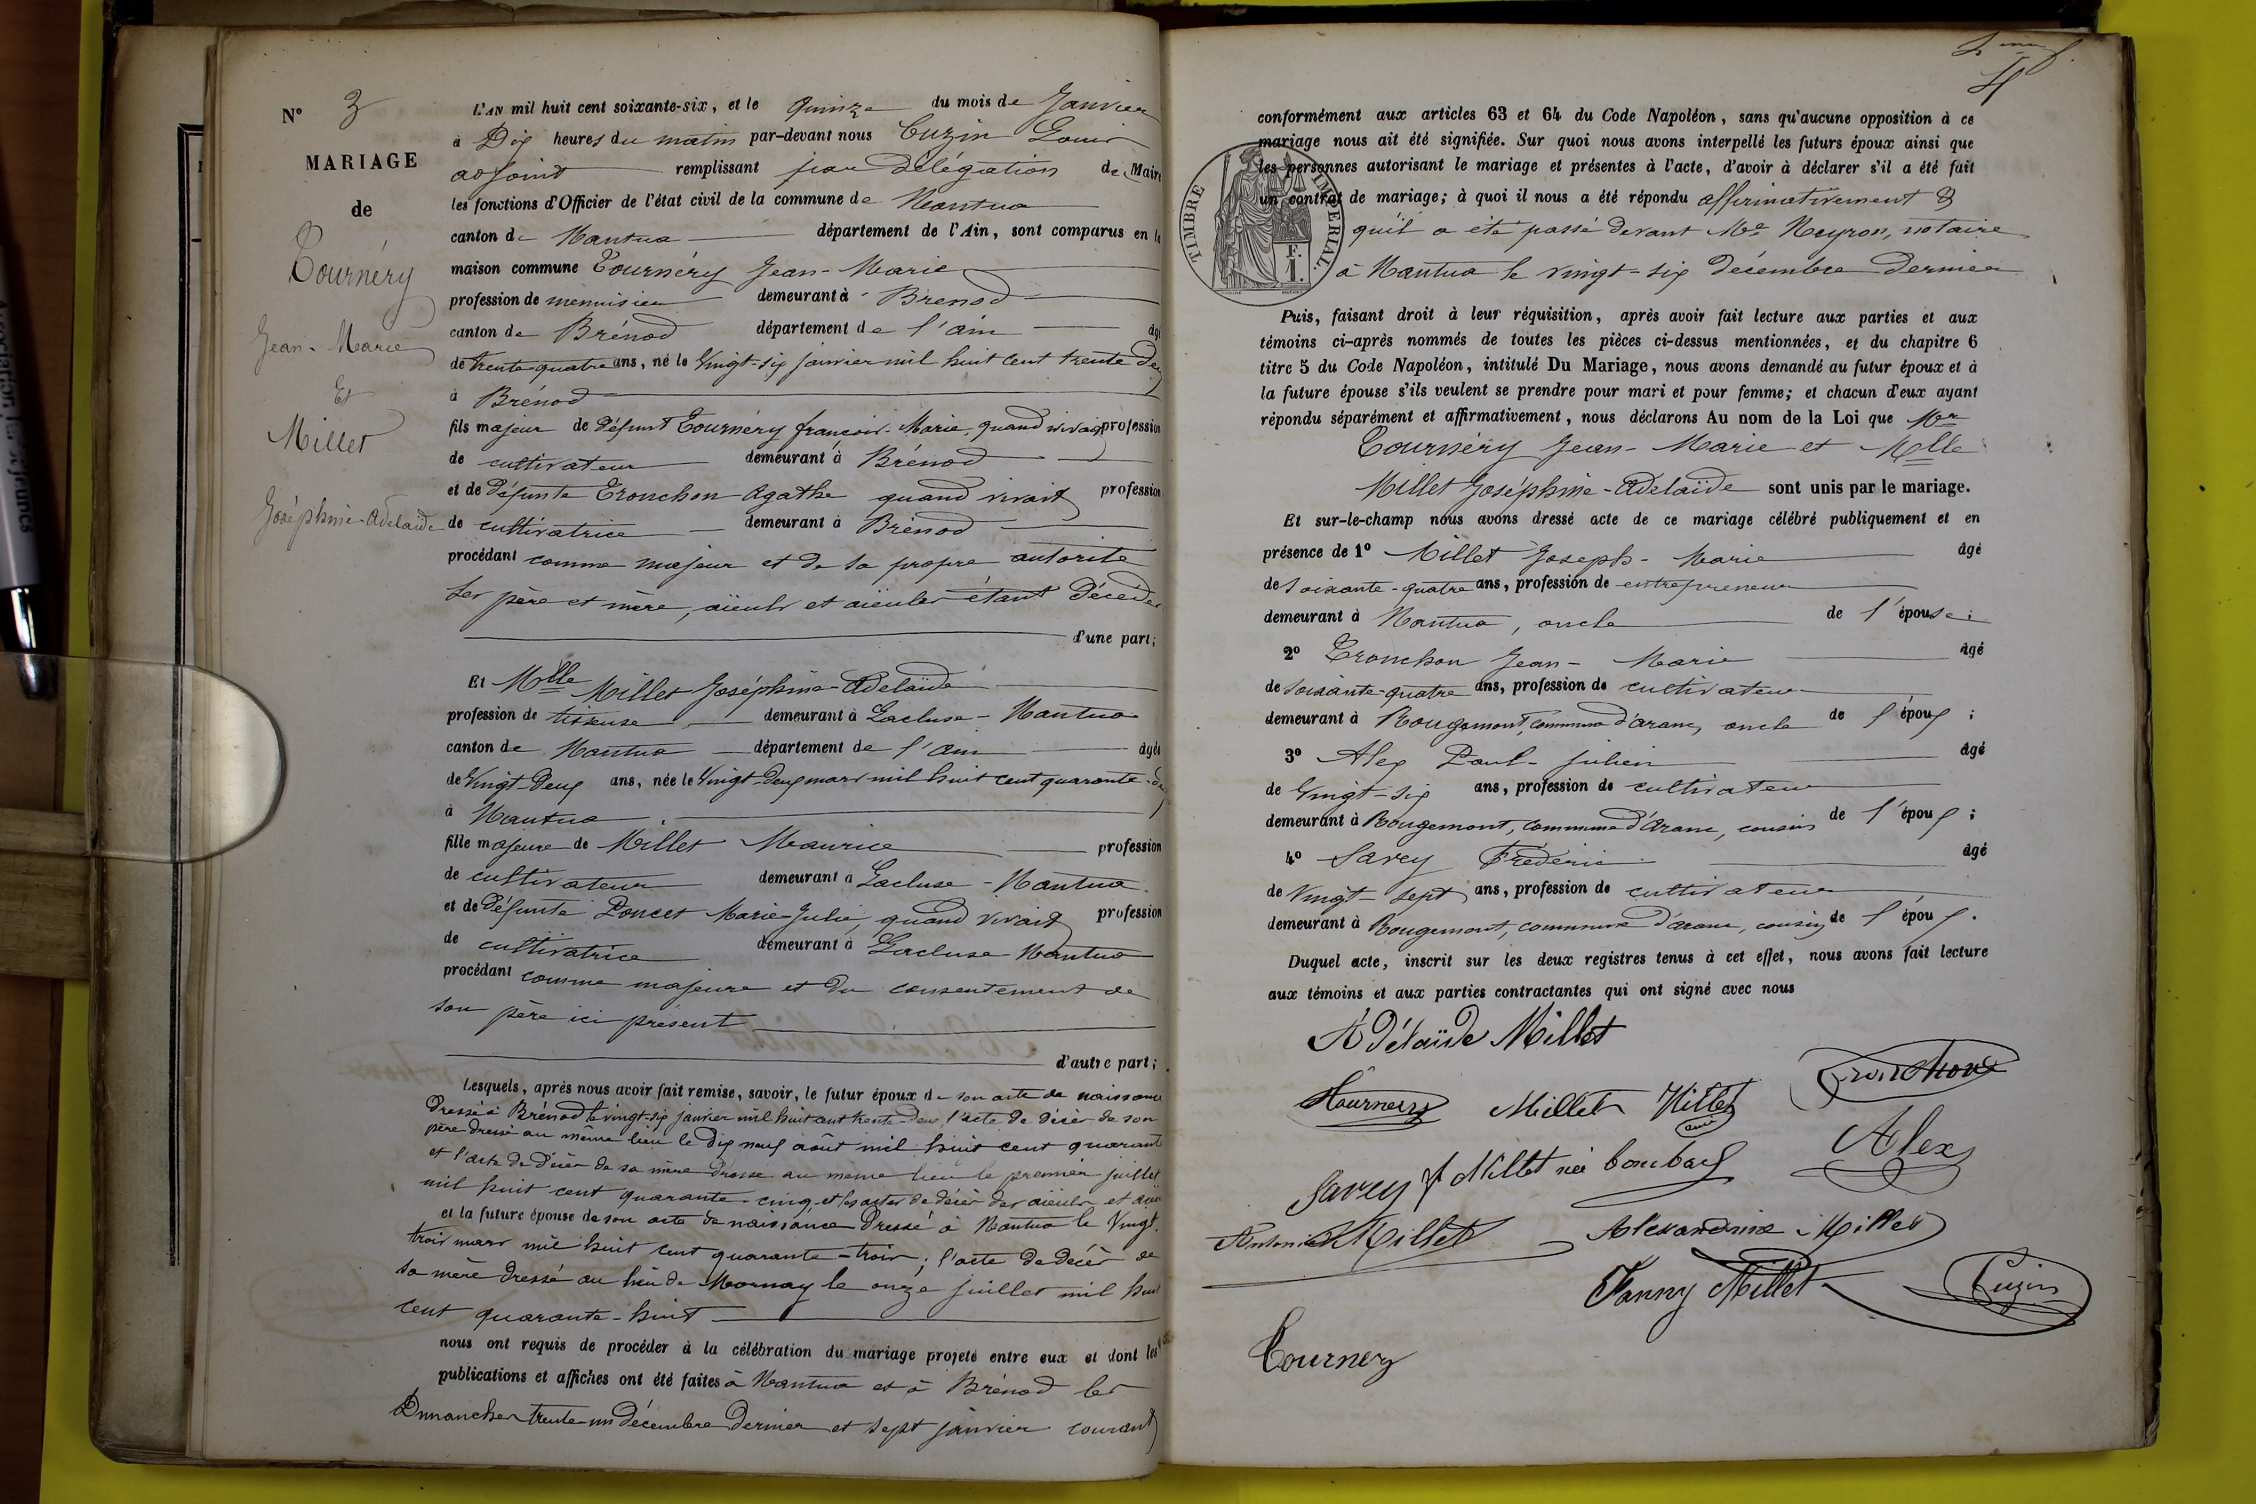 N° 3
MARIAGE
de
Tournéry
Jean-Marie
Et
Millet
Joséphine-Adelaïde
L'AN mil huit cent soixante-six, et le quinze du mois de Janvier
à Dix heures du matin par-devant nous Cuzin Louis
adjoint remplissant par Délégation de Maire
les fonctions d'Officier de l'état civil de la commune de Nantua
canton de Nantua département de l'Ain, sont comparus en la
maison commune Tournéry Jean-Marie
profession de menuisier demeurant à Brénod
canton de Brénod département de l'ain âgé
de trente quatre ans, né le Vingt-six janvier mil huit cent trente deux
à Brénod
fils majeur de défunt Tournéry françois-Marie, quand vivait profession
de cultivateur demeurant à Brénod
et de défunte Tronchon Agathe quand vivait profession
de cultivatrice demeurant à Brénod
procédant comme majeur et de sa propre autorité
ses père et mère, aïeuls et aïeules étant décédés
d'une part;
Et Melle Millet Joséphine-Adelaïde
profession de tisseuse demeurant à Lacluse-Nantua
canton de Nantua département de l'ain âgée
de Vingt-Deux ans, née le Vingt-Deux mars mil huit cent quarante-
à Nantua
fille majeure de Millet Maurice profession
de cultivateur demeurant à Lacluse-Nantua
et de défunte Poncet Marie-Julie, quand vivait profession
de cultivatrice demeurant à Lacluse Nantua
procédant comme majeure et du consentement de
son père ici présent
d'autre part;
Lesquels, après nous avoir fait remise, savoir, le futur époux de son acte de naissance
dressé à Brénod le vingt-six janvier mil huit cent trente-deux l'acte de décès de son
père dressé au même lieu le dix neuf août mil huit cent quarante
et l'acte de décès de sa mère dressé au même lieu le premier juillet
mil huit cent quarante-cinq, et les actes de décès des aïeuls et
et la future épouse de son acte de naissance dressé à Nantua le Vingt-
trois mars mil huit cent quarante-trois; l'acte de décès de
sa mère dressé au lieu de Mornay le onze juillet mil huit
cent quarante-huit
nous ont requis de procéder à la célébration du mariage projeté entre eux et dont les
publications et affiches ont été faites à Nantua et à Brénod les
Dimanches trente un décembre dernier et sept janvier courant
conformément aux articles 63 et 64 du Code Napoléon, sans qu'aucune opposition à ce
mariage nous ait été signifiée. Sur quoi nous avons interpellé les futurs époux ainsi que
les personnes autorisant le mariage et présentes à l'acte, d'avoir à déclarer s'il a été fait
un contrat de mariage; à quoi il nous a été répondu affirmativement &
qu'il a été passé devant Me Neyron, notaire
à Nantua le vingt-six décembre dernier
TIMBRE IMPERIAL.
F.
1.
Puis, faisant droit à leur réquisition, après avoir fait lecture aux parties et aux
témoins ci-après nommés de toutes les pièces ci-dessus mentionnées, et du chapitre 6
titre 5 du Code Napoléon, intitulé Du Mariage, nous avons demandé au futur époux et à
la future épouse s'ils veulent se prendre pour mari et pour femme; et chacun d'eux ayant
répondu séparément et affirmativement, nous déclarons Au nom de la Loi que Mr
Tournéry Jean-Marie et Melle
Millet Joséphine-Adelaïde sont unis par le mariage.
Et sur-le-champ nous avons dressé acte de ce mariage célébré publiquement et en
présence de 1° Millet Joseph-Marie âgé
de soixante-quatre ans, profession de entrepreneur
demeurant à Nantua, oncle de l'épouse;
2° Tronchon Jean-Marie âgé
de soixante-quatre ans, profession de cultivateur
demeurant à Rougemont, commune d'aranc, oncle de l'époux;
3° Alex Paul-Julien âgé
de Vingt-six ans, profession de cultivateur
demeurant à Rougemont, commune d'Aranc, cousin de l'époux;
4° Savey Frédéric âgé
de Vingt-sept ans, profession de cultivateur
demeurant à Rougemont, commune d'aranc, cousin de l'époux.
Duquel acte, inscrit sur les deux registres tenus à cet effet, nous avons fait lecture
aux témoins et aux parties contractantes qui ont signé avec nous
Adélaïde Millet
Tournery Millet Millet Tronchon
Savey f Millet née Alex
Antonin Millet Alexandrine Millet
Fanny Millet Cuzin
Tournery